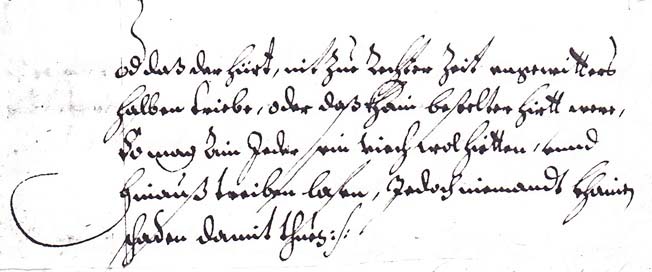 od daß der hürt, nit zue Rechter Zeit ungewitters
halben tribe, oder daß khain bestelter hirtt were,
So mag Ain Jeder sein viech wol hietten, unnd
hinauß treiben lasen, Jedoch niemandt khainen
schaden damit thuen